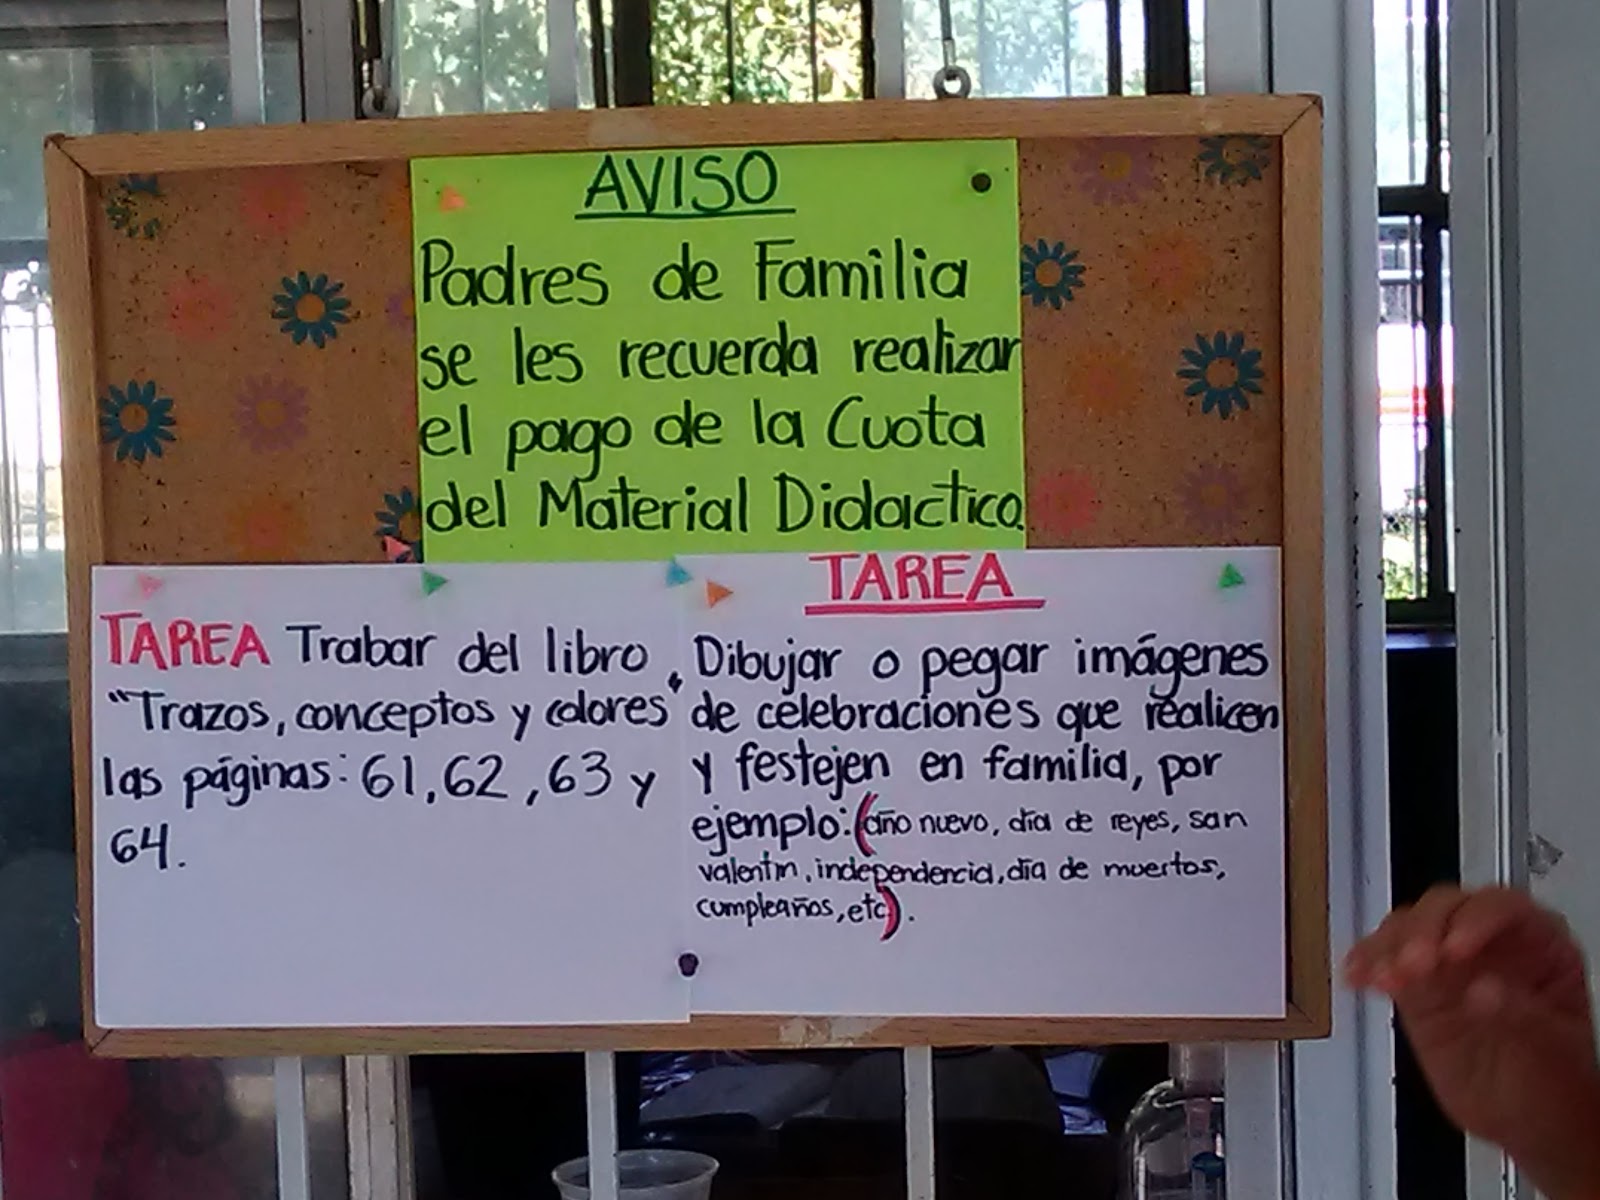 AVISO
Padres de Familia
se les recuerda realizar
el pago de la Cuota
del Material Didactico.
TAREA Trabar del libro
"Trazos, conceptos y colores"
las páginas: 61, 62, 63 y
64.
TAREA
Dibujar o pegar imágenes
de celebraciones que realicen
y festejen en familia, por
ejemplo: (año nuevo, día de reyes, san
valentín, independencia, día de muertos,
cumpleaños, etc).